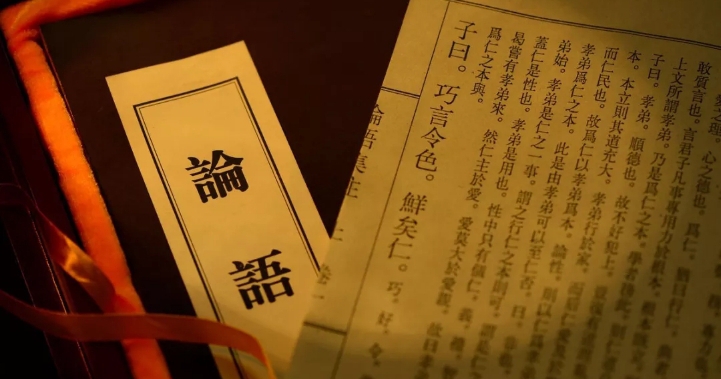 論語
之理。心之德也。爲仁。猶曰行仁。
敢質言也。言君子凡事專用力於根本。根本既立。
上文所謂孝弟。乃是爲仁之本。學者務此。則仁道
子曰。孝弟。順德也。故不好犯上。豈復有逆理亂
本。本立則其道充大。孝弟行於家。而後仁愛及於
而仁民也。故爲仁以孝弟爲本。論性。則以仁爲孝
孝弟爲仁之本。此是由孝弟可以至仁否。曰。非也。
弟始。孝弟是仁之一事。謂之行仁之本則可。謂是仁
蓋仁是性也。孝弟是用也。性中只有箇仁。義。禮。智
曷嘗有孝弟來。然仁主於愛。愛莫大於愛親。故曰孝
爲仁之本與。
子曰。巧言令色。鮮矣仁。巧。好。令。
論語集注 二 卷一